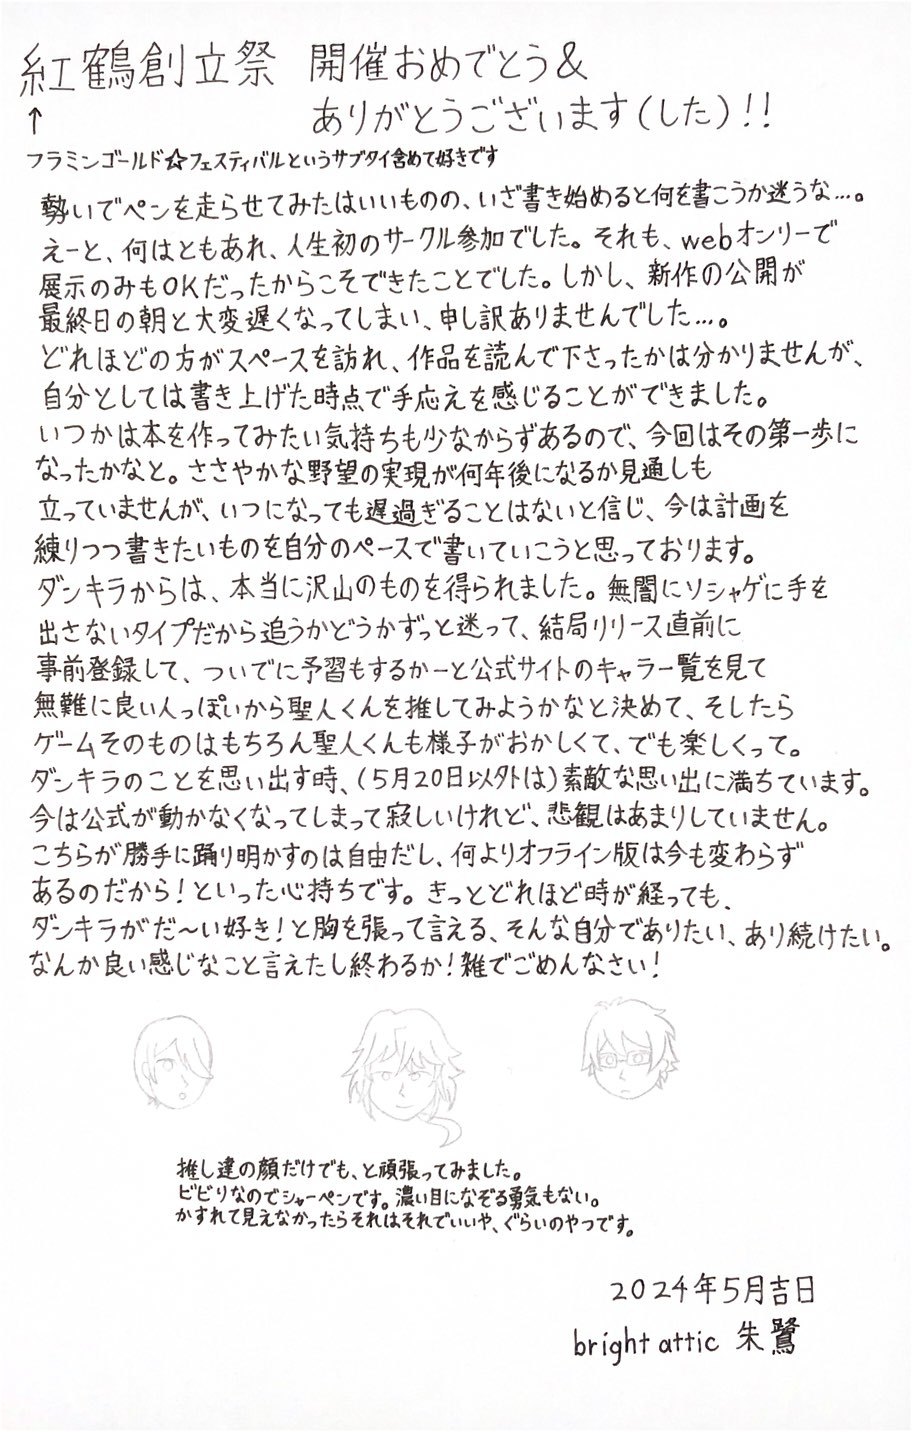 紅鶴創立祭 開催おめでとう&
ありがとうございます(した)!!
↑
フラミンゴールド☆フェスティバルというサブタイ含めて好きです
勢いでペンを走らせてみたはいいものの、いざ書き始めると何を書こうか迷うな…。
えーと、何はともあれ、人生初のサークル参加でした。それも、webオンリーで
展示のみもOKだったからこそできたことでした。しかし、新作の公開が
最終日の朝と大変遅くなってしまい、申し訳ありませんでした…。
どれほどの方がスペースを訪れ、作品を読んで下さったかは分かりませんが、
自分としては書き上げた時点で手応えを感じることができました。
いつかは本を作ってみたい気持ちも少なからずあるので、今回はその第一歩に
なったかなと。ささやかな野望の実現が何年後になるか見通しも
立っていませんが、いつになっても遅過ぎることはないと信じ、今は計画を
練りつつ書きたいものを自分のペースで書いていこうと思っております。
ダンキラからは、本当に沢山のものを得られました。無闇にソシャゲに手を
出さないタイプだから追うかどうかずっと迷って、結局リリース直前に
事前登録して、ついでに予習もするかーと公式サイトのキャラ一覧を見て
無難に良い人っぽいから聖人くんを推してみようかなと決めて、そしたら
ゲームそのものはもちろん聖人くんも様子がおかしくて、でも楽しくって。
ダンキラのことを思い出す時、(5月20日以外は)素敵な思い出に満ちています。
今は公式が動かなくなってしまって寂しいけれど、悲観はあまりしていません。
こちらが勝手に踊り明かすのは自由だし、何よりオフライン版は今も変わらず
あるのだから!といった心持ちです。きっとどれほど時が経っても、
ダンキラがだ〜い好き!と胸を張って言える、そんな自分でありたい、あり続けたい。
なんか良い感じなこと言えたし終わるか!雑でごめんなさい!
推し達の顔だけでも、と頑張ってみました。
ビビりなのでシャーペンです。濃い目になぞる勇気もない。
かすれて見えなかったらそれはそれでいいや、ぐらいのやつです。
2024年5月吉日
bright attic 朱鷺